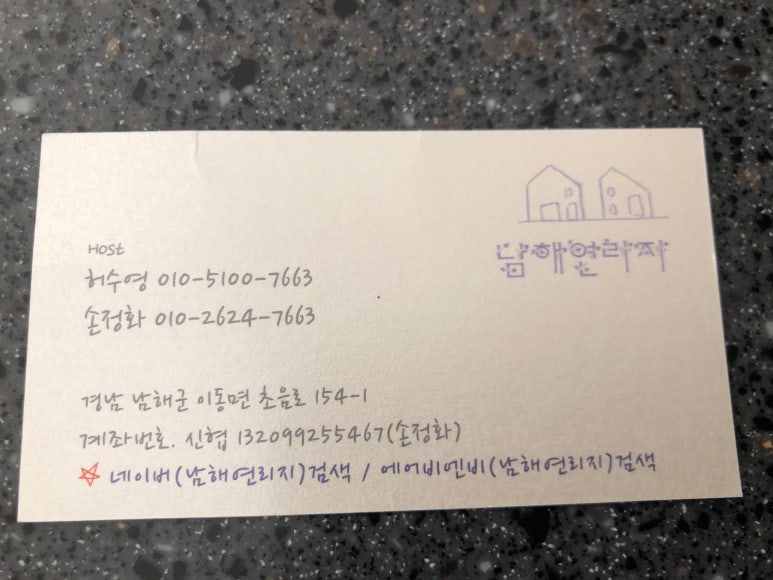 남해연리지
Host
허수영 010-5100-7663
손정화 010-2624-7663
경남 남해군 이동면 초음로 154-1
계좌번호. 신협 132099255467(손정화)
네이버(남해연리지)검색 / 에어비엔비(남해연리지)검색